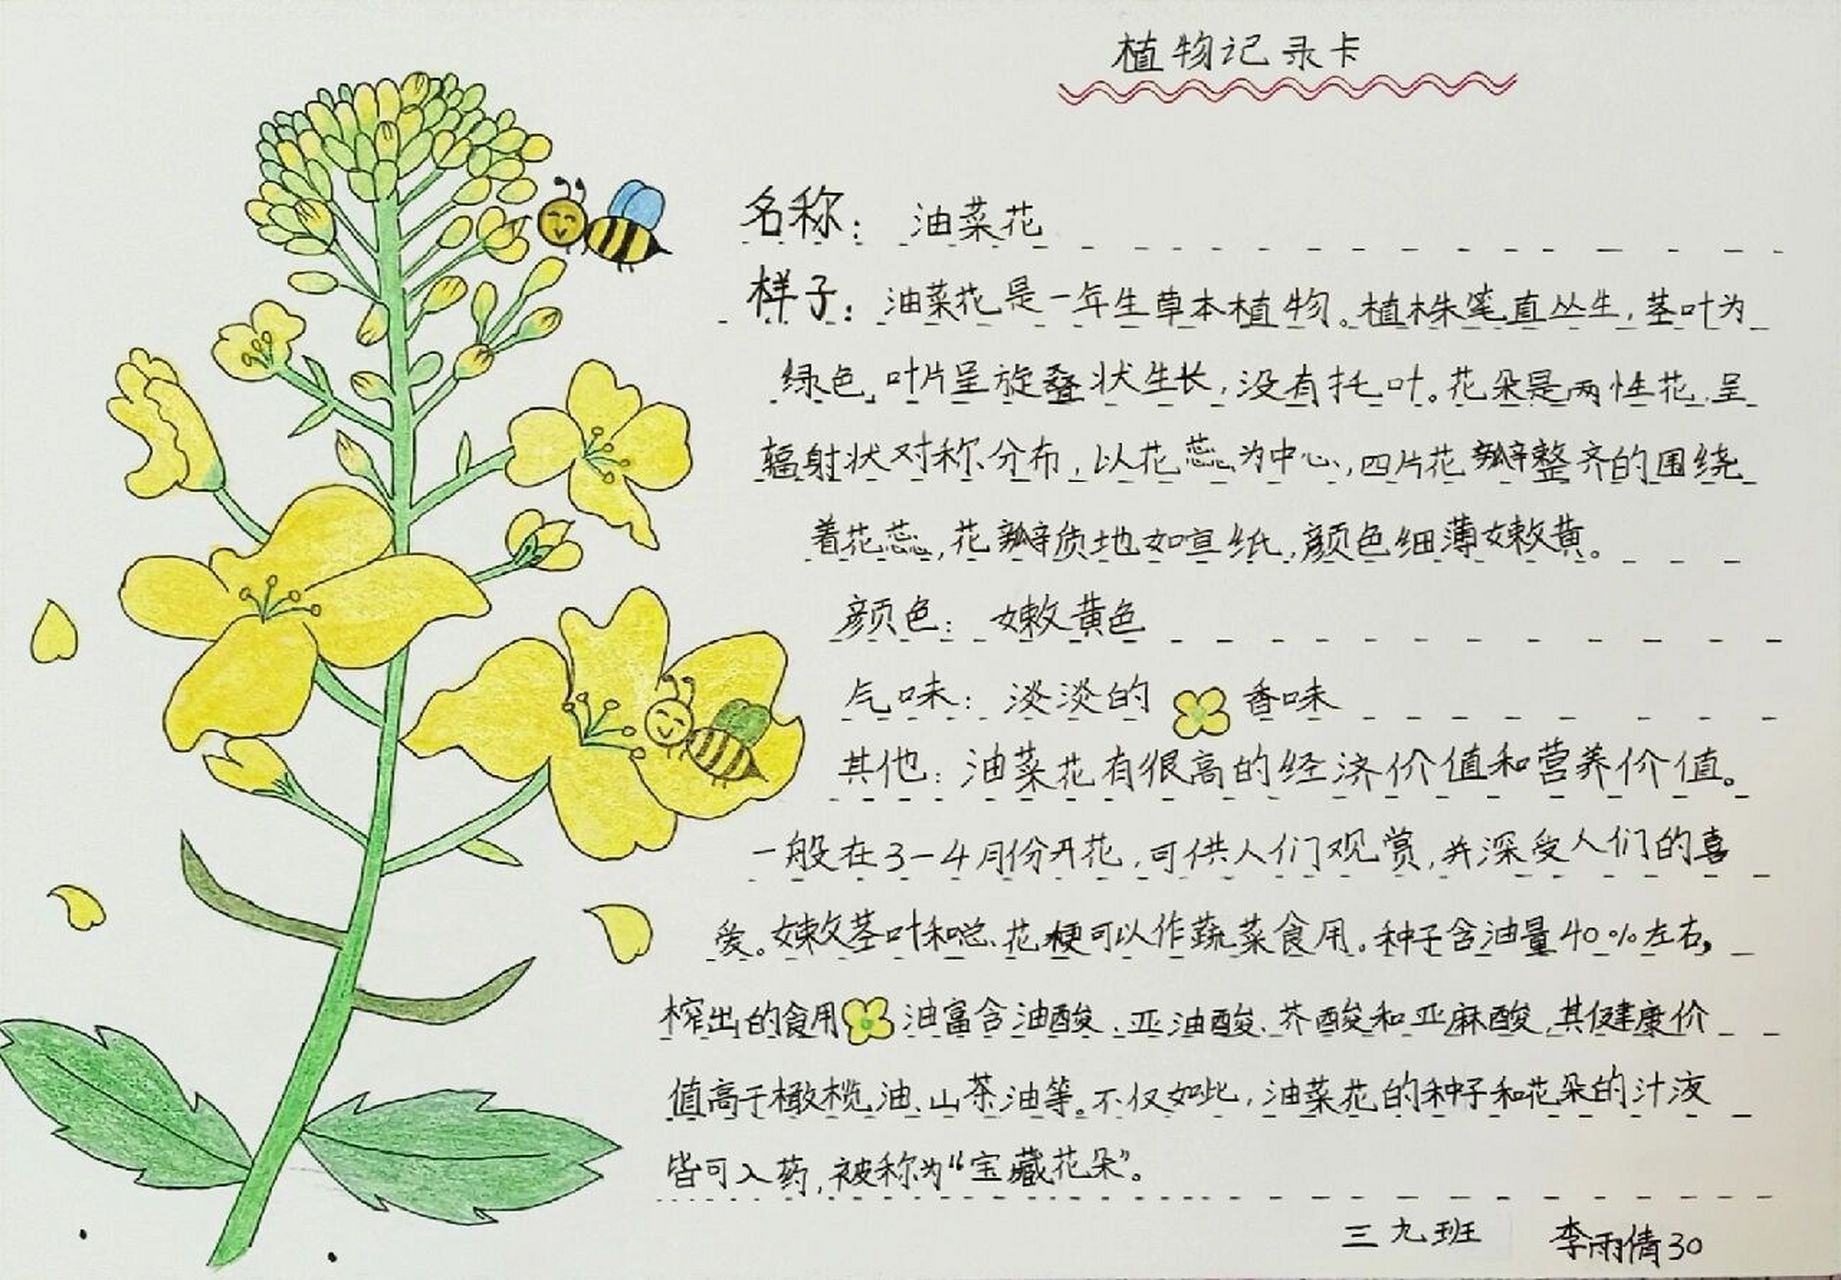 植物记录卡
名称：油菜花
样子：油菜花是一年生草本植物。植株笔直丛生，茎叶为
绿色，叶片呈旋叠状生长，没有托叶。花朵是两性花，呈
辐射状对称分布，以花蕊为中心，四片花瓣整齐的围绕
着花蕊，花瓣质地如宣纸，颜色细薄嫩黄。
颜色：嫩黄色
气味：淡淡的香味
其他：油菜花有很高的经济价值和营养价值。
一般在3-4月份开花，可供人们观赏，并深受人们的喜
爱。嫩茎叶和总花梗可以作蔬菜食用。种子含油量40%左右，
榨出的食用油富含油酸、亚油酸、芥酸和亚麻酸，其健康价
值高于橄榄油、山茶油等。不仅如此，油菜花的种子和花朵的汁液
皆可入药，被称为“宝藏花朵”。
三九班 李雨倩30